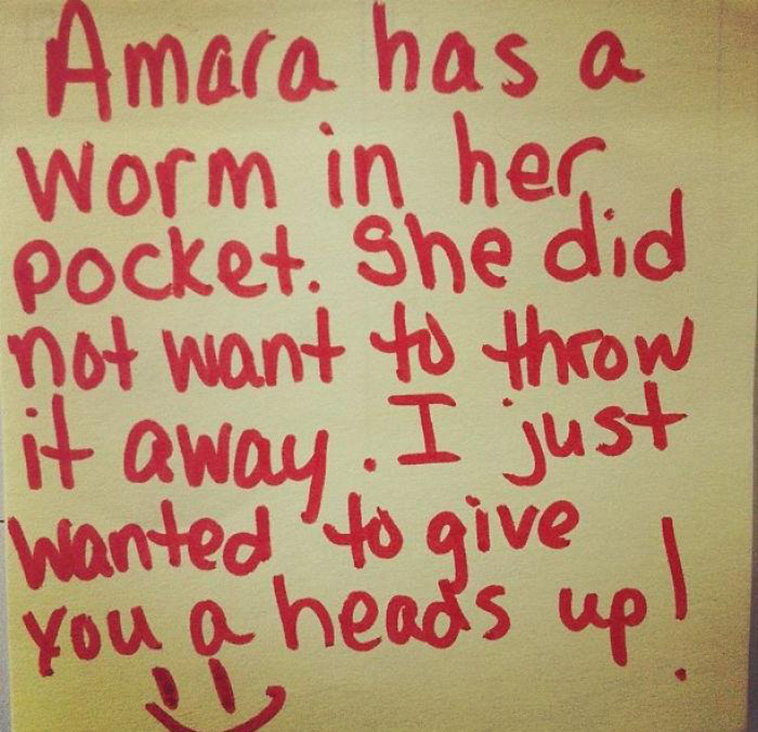 Amara has a
worm in her
pocket. She did
not want to throw
it away. I just
wanted to give
you a heads up!